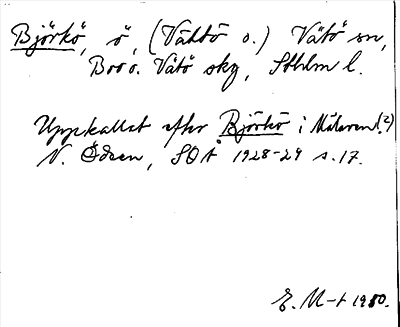 Björkö, ö, (Vättö o.) Vätö sn,
Bro o. Vätö skg, Sthlm l.
Uppkallat efter Björkö i Mälaren(?)
N. Ödeen, SOÅ 1928-29 s. 17.
E. M-t 1980.